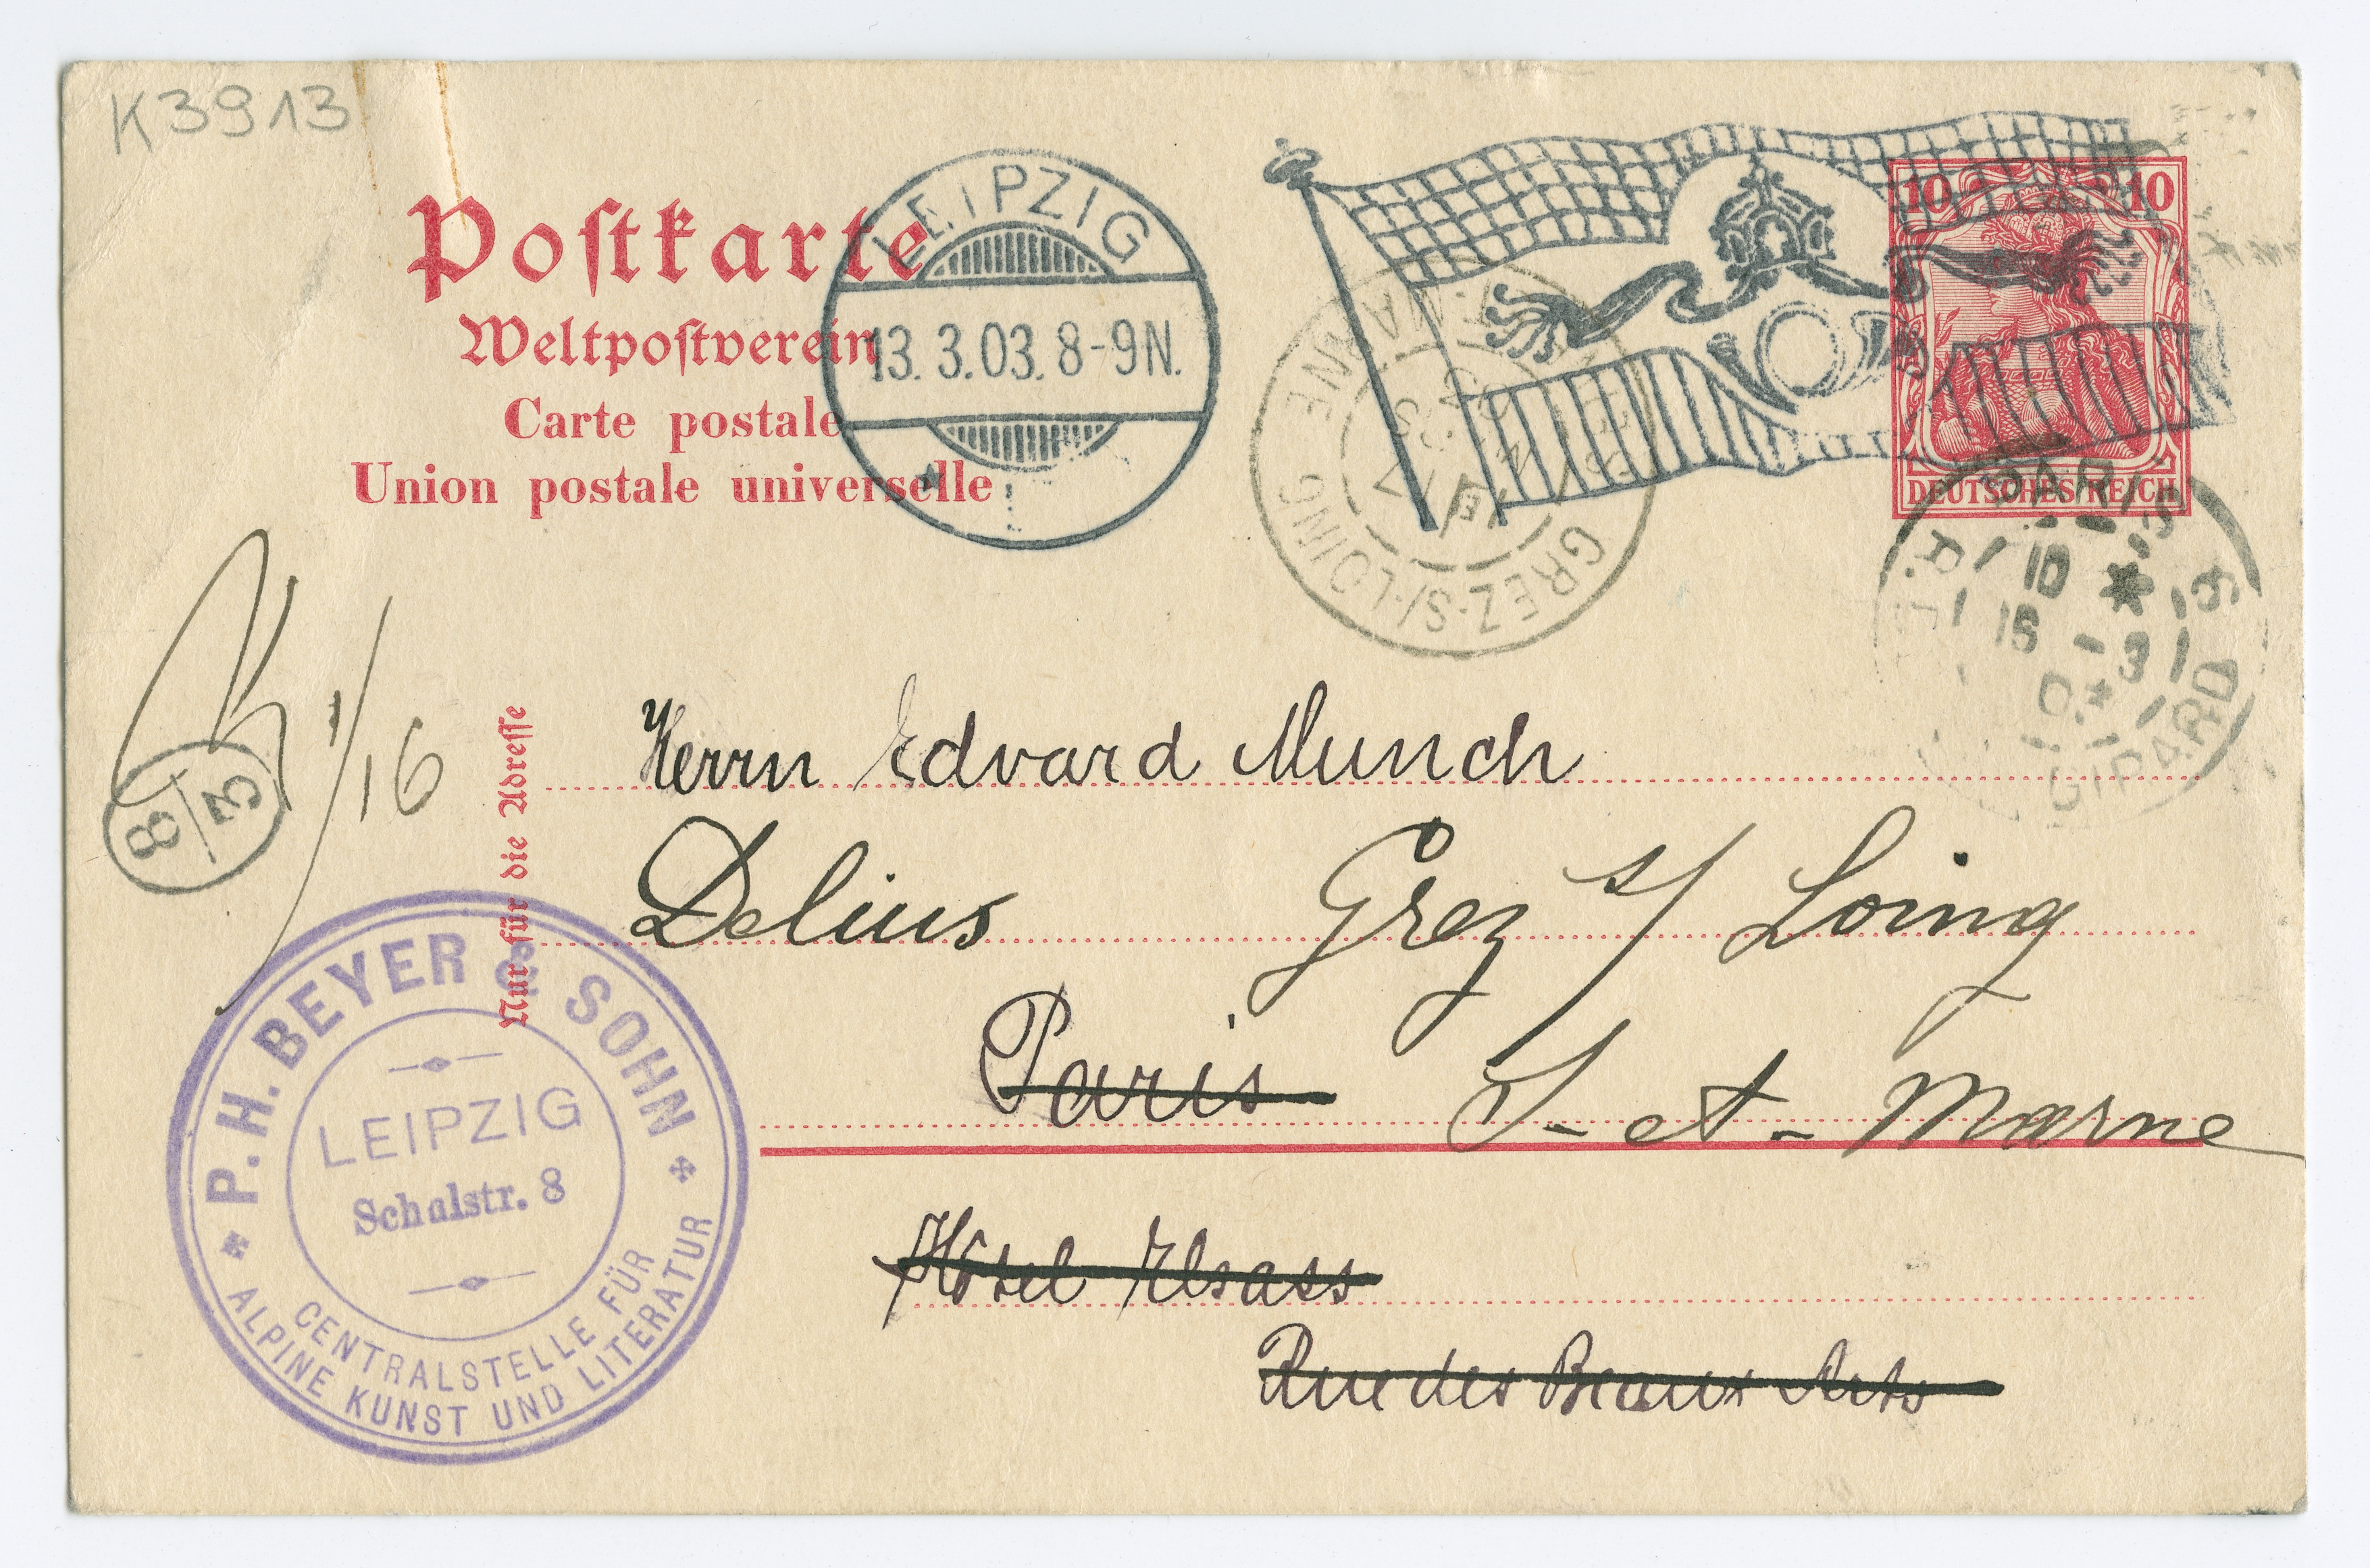 K3913
Postkarte
Weltpostverein
Carte postale
Union postale universelle
LEIPZIG
13. 3. 03. 8-9N.
10 10
DEUTSCHES REICH
GREZ-S/-LOING
MARNE
PARIS
10
16 -3
03
R.
GIPARD
1/16
8/3
Nur für die Adresse
Herrn Edvard Munch
Delius Grez s/ Loing
Paris S-et-Marne
Hôtel Elsass
Rue des Beaux Arts
P. H. BEYER & SOHN
LEIPZIG
Schulstr. 8
CENTRALSTELLE FÜR
ALPINE KUNST UND LITERATUR